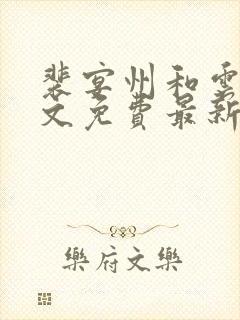 裴宴州和雲
文免費最新
樂府文樂